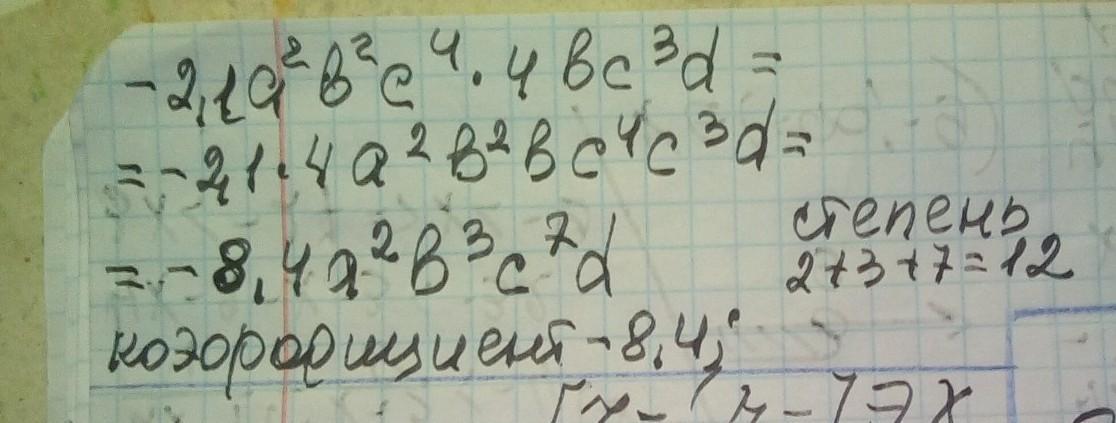 -2,1a²b²c⁴·4bc³d=
=-2,1·4a²b²bc⁴c³d=
=-8,4a²b³c⁷d
степень
2+3+7=12
коэффициент -8,4;